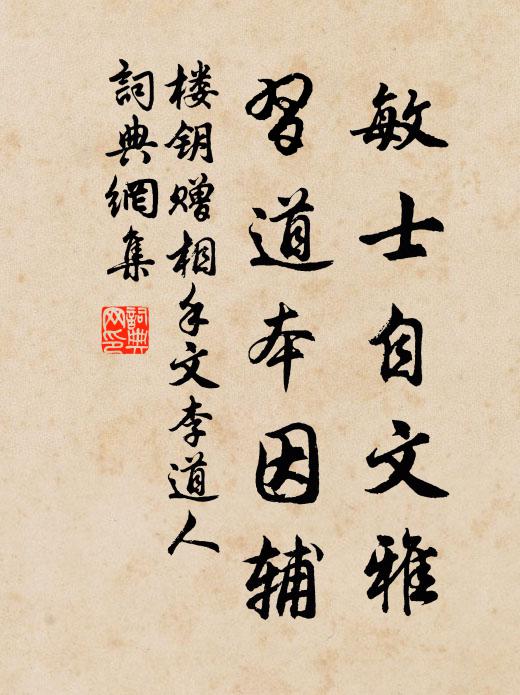 敏士自文雅
習道本因辅
楼钥赠相手文李道人
詞典網集
詞典网印